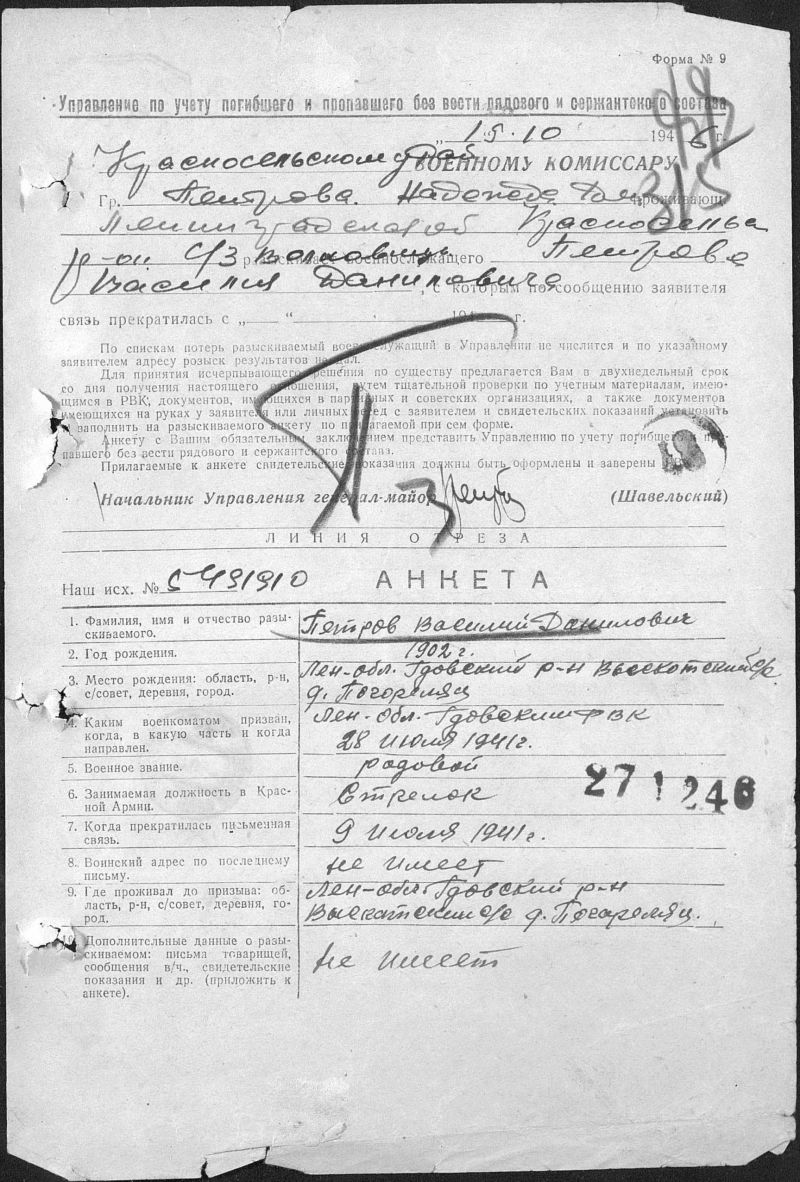 Форма № 9
Управление по учету погибшего и пропавшего без вести рядового и сержантского состава
„ 15.10 194 6 г.
Красносельскому рай ВОЕННОМУ КОМИССАРУ
Гр. Петрова Надежда проживающ.
Ленинградской Красносельск
р-он с/з разыскивает военнослужащего Петрова
Василия Даниловича, с которым по сообщению заявителя
связь прекратилась с „ “ 194 г.
По спискам потерь разыскиваемый военнослужащий в Управлении не числится и по указанному
заявителем адресу розыск результатов не дал.
Для принятия исчерпывающего решения по существу предлагается Вам в двухнедельный срок
со дня получения настоящего отношения, путем тщательной проверки по учетным материалам, имею-
щимся в РВК, документов, имеющихся в партийных и советских организациях, а также документов
имеющихся на руках у заявителя или личных бесед с заявителем и свидетельских показаний установить
и заполнить на разыскиваемого анкету по прилагаемой при сем форме.
Анкету с Вашим обязательным заключением представить Управлению по учету погибшего и про-
павшего без вести рядового и сержантского состава.
Прилагаемые к анкете свидетельские показания должны быть оформлены и заверены
Начальник Управления генерал-майор (Шавельский)
ЛИНИЯ ОТРЕЗА
Наш исх. № 5491910 АНКЕТА
1. Фамилия, имя и отчество разы-
скиваемого.
Петров Василий Данилович
2. Год рождения.
1902 г.
3. Место рождения: область, р-н,
с/совет, деревня, город.
Лен-обл. Гдовский р-н Выскотский с/с
д. Погореляц
4. Каким военкоматом призван,
когда, в какую часть и когда
направлен.
Лен-обл. Гдовским РВК
28 июля 1941 г.
5. Военное звание.
рядовой
6. Занимаемая должность в Крас-
ной Армии.
Стрелок
271246
7. Когда прекратилась письменная
связь.
9 июля 1941 г.
8. Воинский адрес по последнему
письму.
не имеет
9. Где проживал до призыва: об-
ласть, р-н, с/совет, деревня, го-
род.
Лен-обл. Гдовский р-н
Выскатский с/с д. Погореляц.
10. Дополнительные данные о разы-
скиваемом: письма товарищей,
сообщения в/ч., свидетельские
показания и др. (приложить к
анкете).
не имеет